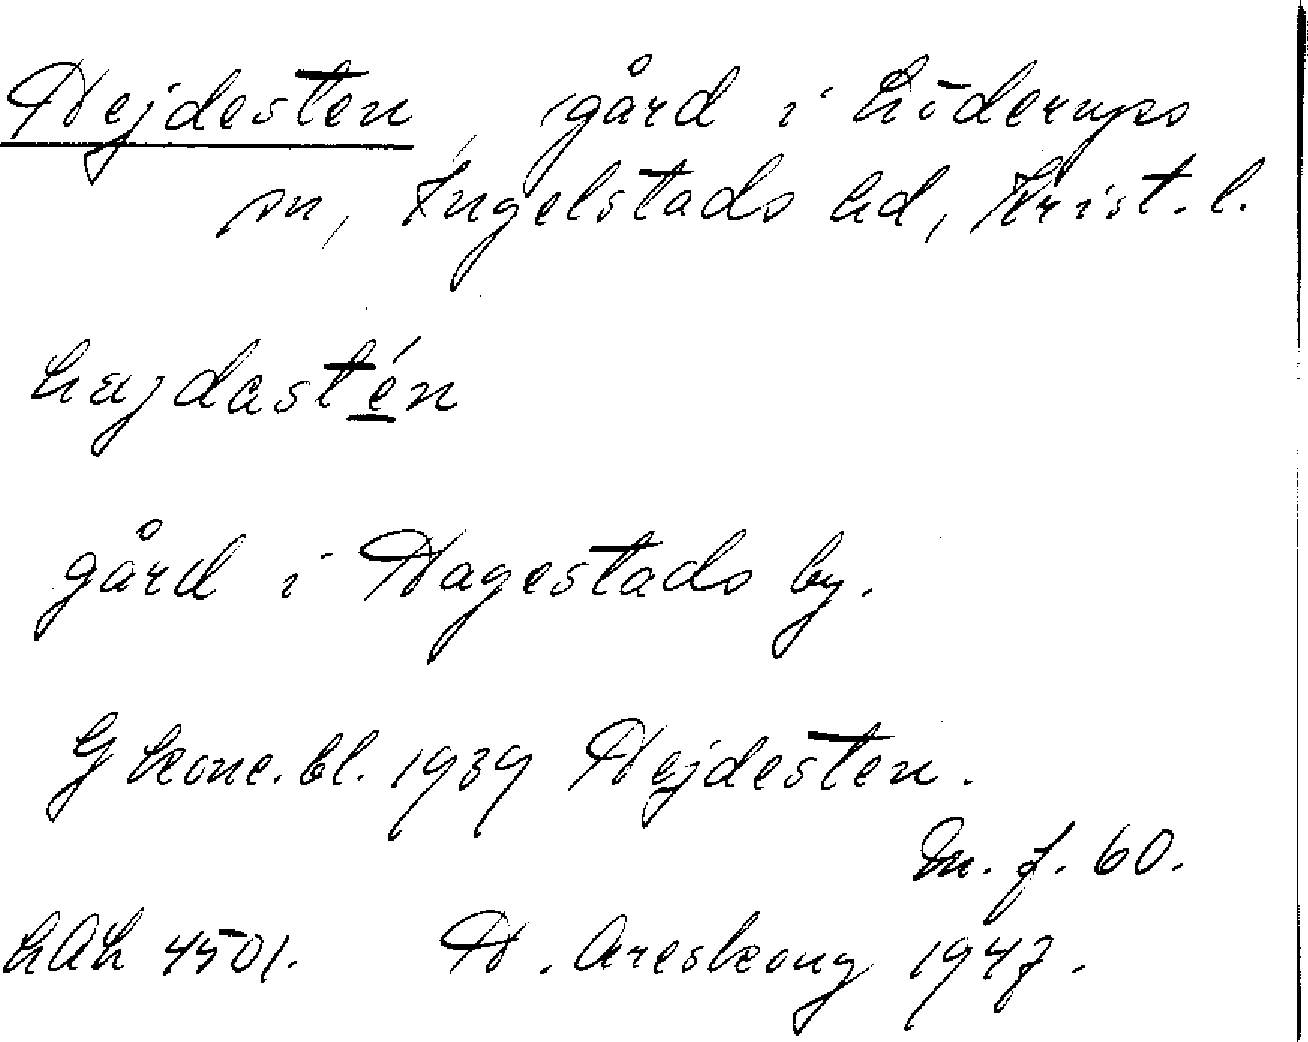 Hejdesten, gård i Löderups
sn, Ingelstads hd, Krist. l.
hajdastén
gård i Hagestads by.
G konc. bl. 1939 Hejdesten.
M. f. 60.
LAL 4501. H. Areskoug 1947.